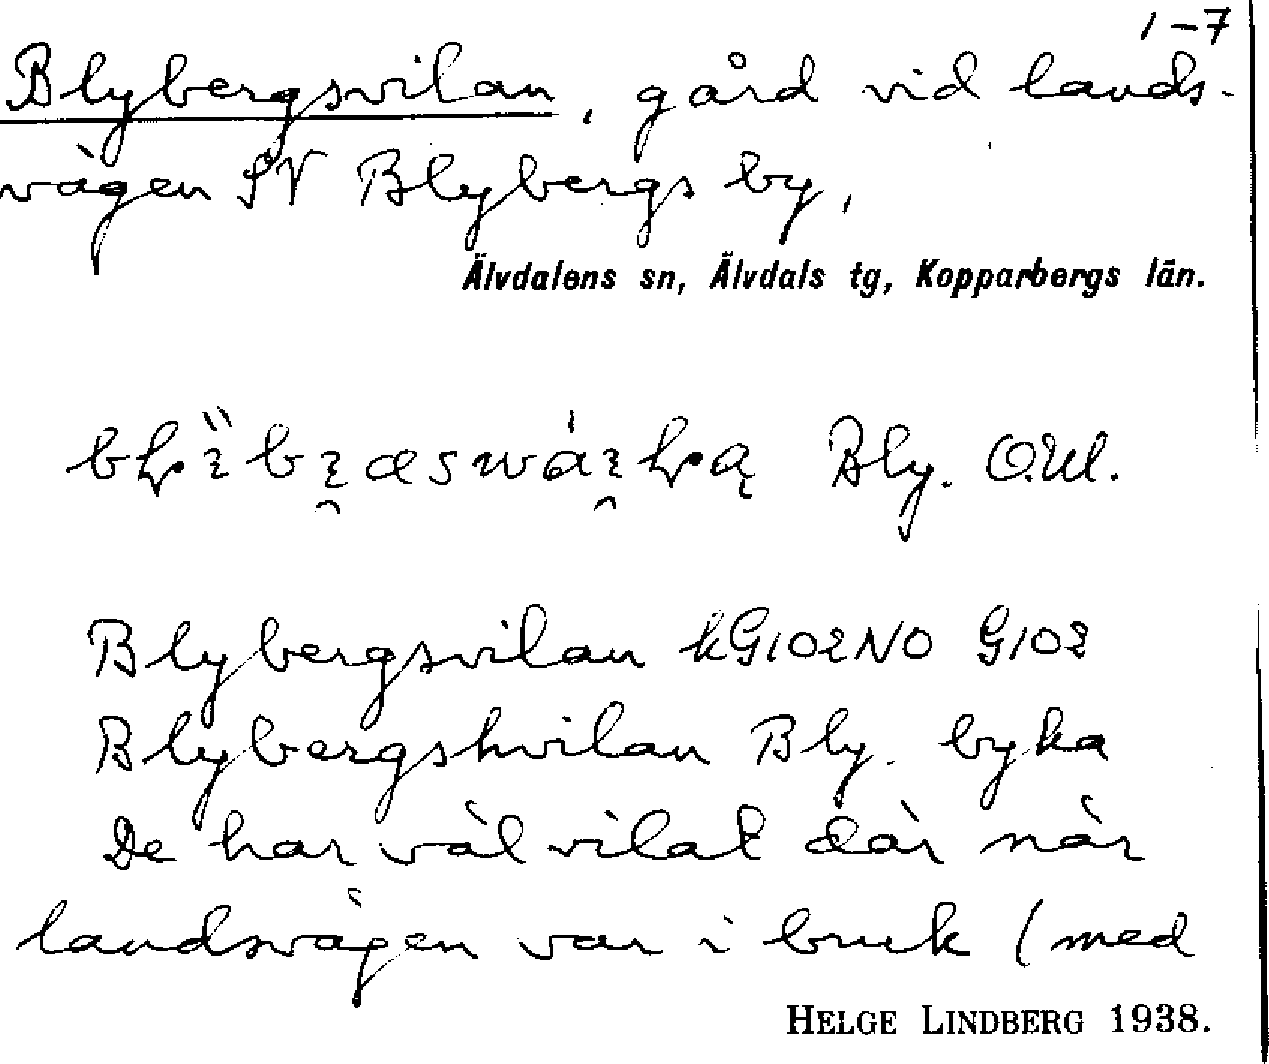 1-7
Blybergsvilan, gård vid lands-
vägen SV Blybergs by,
Älvdalens sn, Älvdals tg, Kopparbergs län.
Bly. O.Ul.
Blybergsvilan kG102NO G102
Blybergshvilan Bly. byka
De har väl vilat där när
landsvägen var i bruk (med
HELGE LINDBERG 1938.